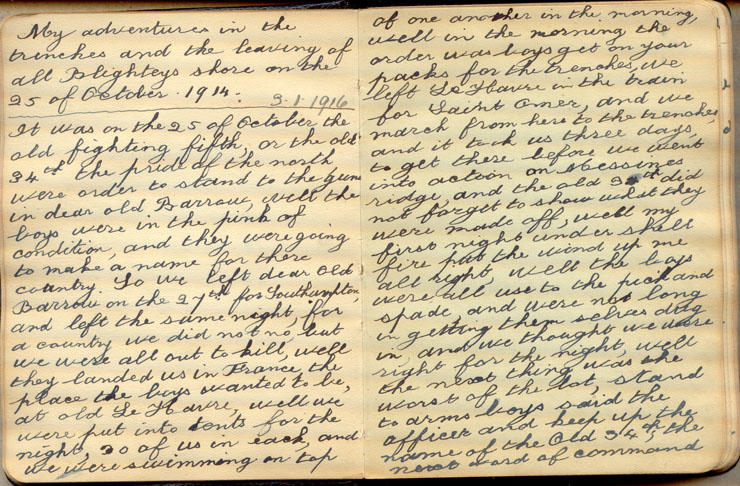 My adventures in the
trenches and the leaving of
all Blighteys shore on the
25 of October. 1914.
3.1.1916
It was on the 25 of October the
old fighting fifth, or the old
34th the pride of the north
were order to stand to the guns
in dear old Barrow, well the
boys were in the pink of
condition, and they were going
to make a name for there
country. So we left dear Old
Barrow on the 27th for Southampton,
and left the same night, for
a country we did not no, but
we were all out to kill, well
they landed us in France the
place the boys wanted to be,
at old Le Havre, well we
were put into tents for the
night, 20 of us in each, and
we were swimming on top
of one another in the morning,
well in the morning the
order was boys get on your
packs for the trenches, we
left Le Havre in the train
for Saint Omer, and we
march from here to the trenches
and it took us three days,
to get there before we went
into action on Messines
ridge, and the old 34th did
not forget to show what they
were made off, well my
first night under shell
fire put the wind up me
all right, well the boys
were all use to the pick and
spade, and were not long
in getting them selves dug
in, and we thought we were
right for the night, well
the next thing was the
worst of the lot, stand
to arms boys said the
officer and keep up the
name of the Old 34th, the
next word of command